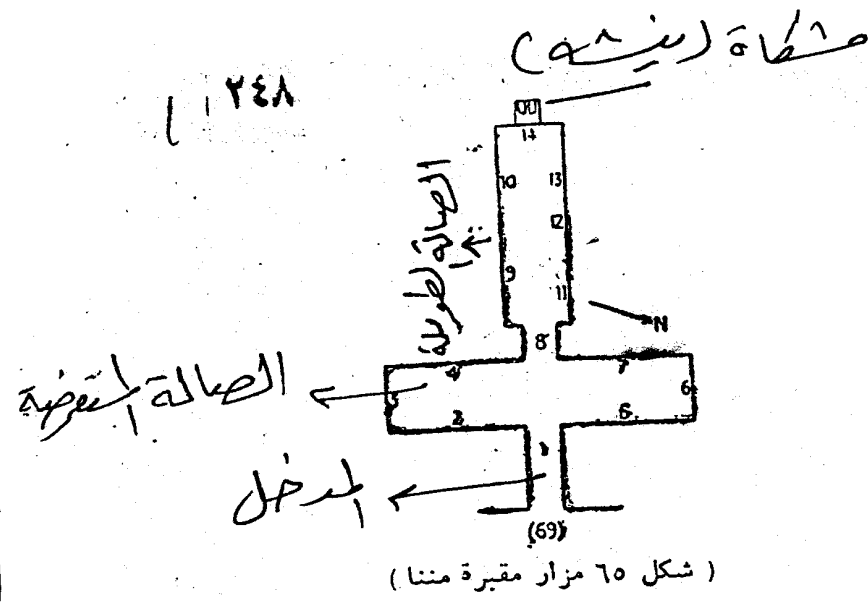 مشكاة (نيشه)
٢٤٨
14
10
13
12
الصالة الطويلة
9
11
N
8
4
7
الصالة المستعرضة
3
6
2
5
1
المدخل
(69)
( شكل ٦٥ مزار مقبرة مننا )